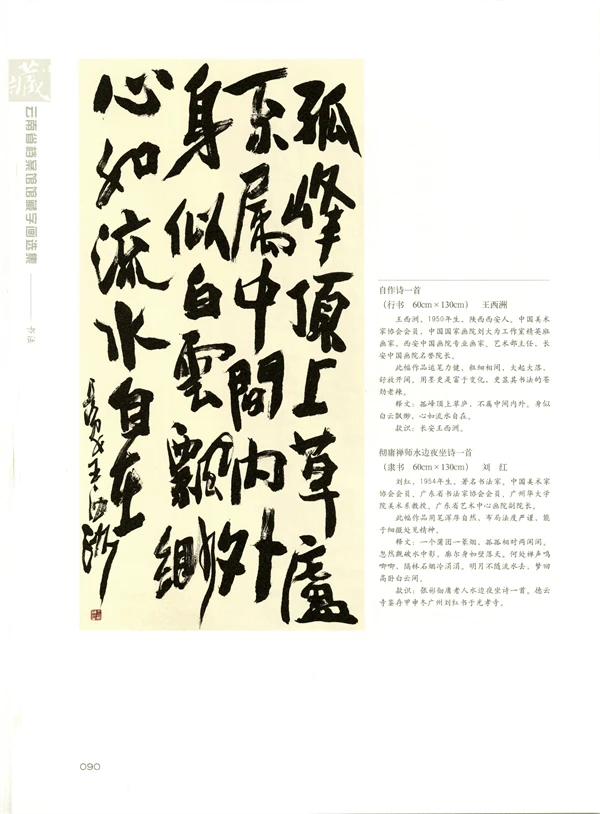 藏
云南省档案馆馆藏字画选集 —— 书法
孤峰頂上草廬
不属中間内外
身似白雲飄緲
心如流水自在
長安王西洲
自作诗一首
(行书 60cm×130cm) 王西洲
王西洲，1950年生，陕西西安人。中国美术
家协会会员，中国国家画院刘大为工作室精英班
画家，西安中国画院专业画家、艺术部主任，长
安中国画院名誉院长。
此幅作品运笔力健，粗细相间，大起大落，
舒放开阔，用墨更是富于变化，更显其书法的苍
劲老辣。
释文：孤峰顶上草庐，不属中间内外。身似
白云飘缈，心如流水自在。
款识：长安王西洲。
彻庸禅师水边夜坐诗一首
(隶书 60cm×130cm) 刘 红
刘红，1954年生，著名书法家。中国美术家
协会会员、广东省书法家协会会员，广州华大学
院美术系教授，广东省艺术中心画院副院长。
此幅作品用笔浑厚自然，布局法度严谨，能
于细微处见精神。
释文：一个蒲团一篆烟，孤孤相对两闲闲。
忽然觑破水中影，廓尔身如壁落天。何处禅声鸣
唧唧，隔林石烟冷涓涓。明月不随流水去，梦回
高卧白云间。
款识：张彬彻庸老人水边夜坐诗一首。德云
寺鉴存甲申冬广州刘红书于光孝寺。
090